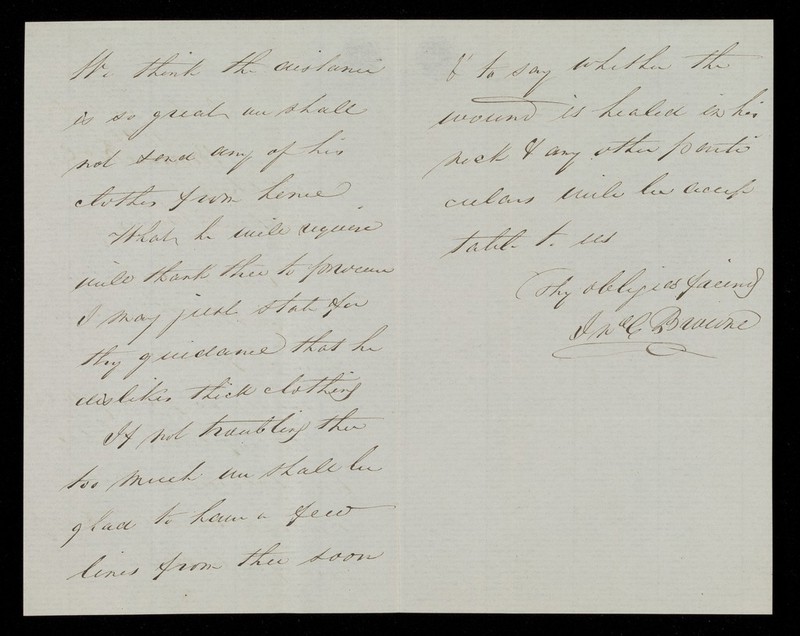 We think the distance
is so great we shall
not send any of his
clothes from hence
What he will require
will thank thee to procure
I may just state for
thy guidance that he
dislikes thick clothing
If not troubling thee
too much we shall be
glad to have a few
lines from thee soon
& to say whether the
wound is healed in his
neck & any other parti
culars will be accep
table to us
Thy obliged friend
Browne